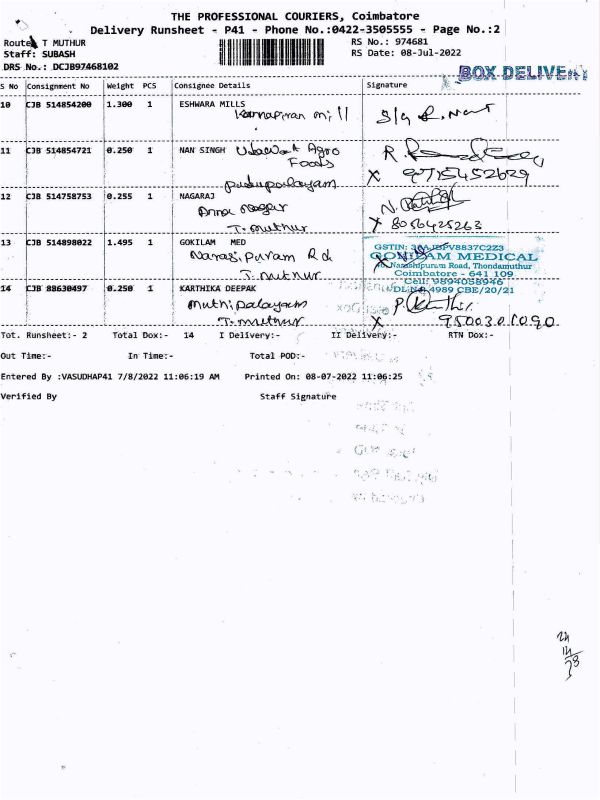 THE PROFESSIONAL COURIERS, Coimbatore
Delivery Runsheet - P41 - Phone No.:0422-3505555 - Page No.:2
Route: T MUTHUR RS No.: 974681
Staff: SUBASH RS Date: 08-Jul-2022
DRS No.: DCJB97468102
BOX DELIVERY
S No Consignment No Weight PCS Consignee Details Signature
10 CJB 514854200 1.300 1 ESHWARA MILLS
Kannapiran mill
11 CJB 514854721 0.250 1 NAN SINGH Udawat Agro
Foods
Pudupalayam X 9715452629
12 CJB 514758753 0.255 1 NAGARAJ
Anna Nagar
T. muthur X 8056425263
13 CJB 514898022 1.495 1 GOKILAM MED
Narasipuram Rd
T. muthur
GSTIN:
GOKILAM MEDICAL
Narashipuram Road, Thondamuthur
Coimbatore - 641 109
Cell: 9894058946
DL.No. 4989 CBE/20/21
14 CJB 88630497 0.250 1 KARTHIKA DEEPAK
Muthipalayam
T. muthur X 9500301090
Tot. Runsheet:- 2 Total Dox:- 14 I Delivery:- II Delivery:- RTN Dox:-
Out Time:- In Time:- Total POD:-
Entered By :VASUDHAP41 7/8/2022 11:06:19 AM Printed On: 08-07-2022 11:06:25
Verified By Staff Signature